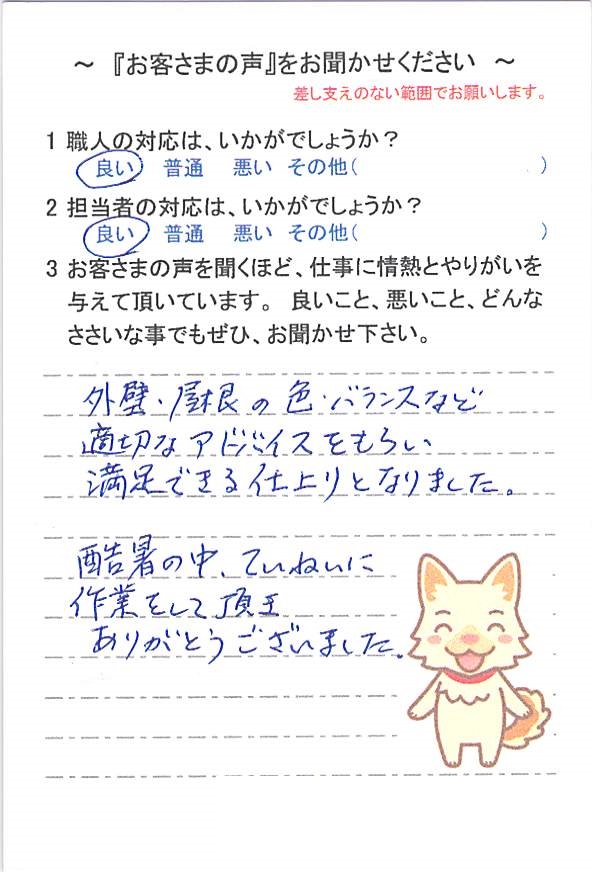 ～ 『お客さまの声』をお聞かせください ～
差し支えのない範囲でお願いします。
1 職人の対応は、いかがでしょうか？
良い 普通 悪い その他( )
2 担当者の対応は、いかがでしょうか？
良い 普通 悪い その他( )
3 お客さまの声を聞くほど、仕事に情熱とやりがいを
与えて頂いています。 良いこと、悪いこと、どんな
ささいな事でもぜひ、お聞かせ下さい。
外壁・屋根の色・バランスなど
適切なアドバイスをもらい
満足できる仕上りとなりました。
酷暑の中、ていねいに
作業をして頂き
ありがとうございました。